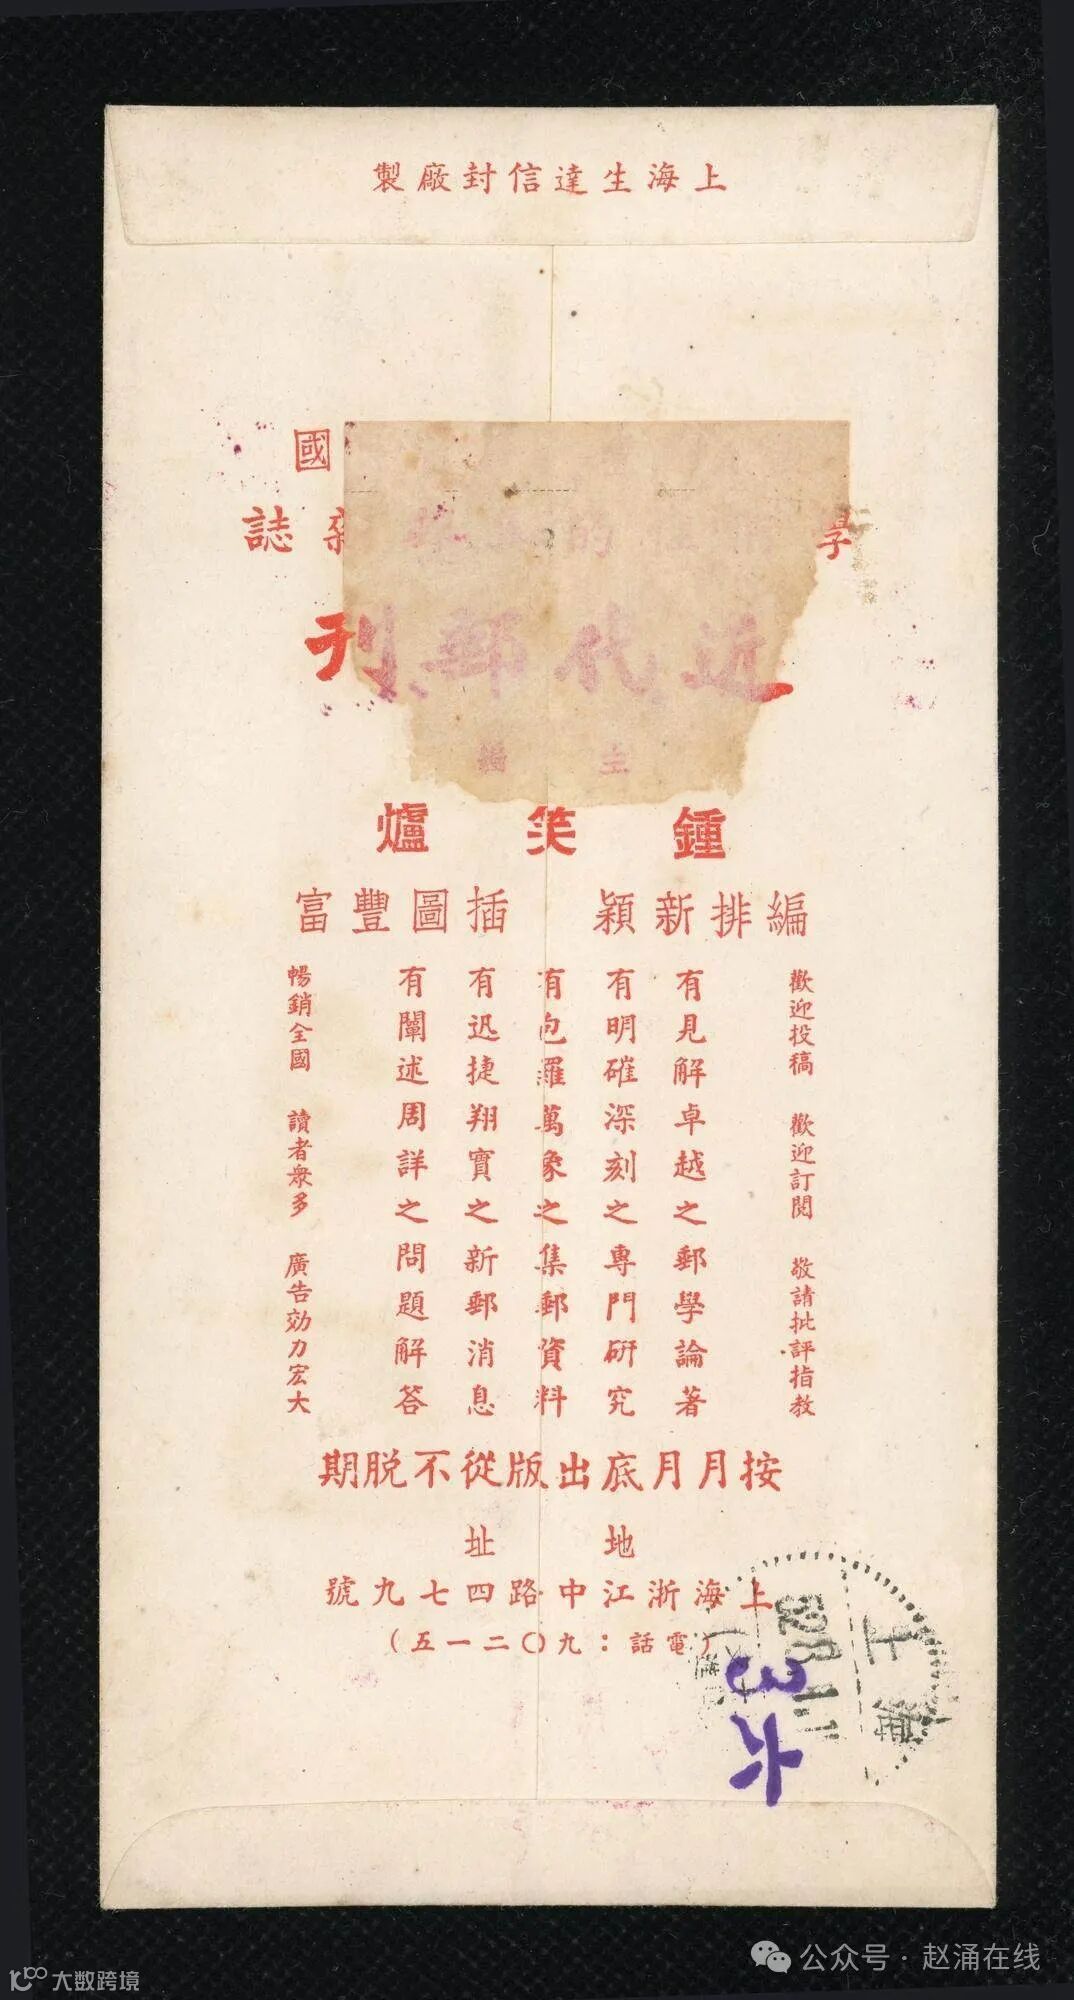 上海生達信封廠製
國
學 的 雜誌
近代郵刊
主編
鍾笑爐
編排新穎 插圖豐富
歡迎投稿 歡迎訂閱 敬請批評指教
有見解卓越之郵學論著
有明確深刻之專門研究
有包羅萬象之集郵資料
有迅捷翔實之新郵消息
有闡述周詳之問題解答
暢銷全國 讀者衆多 廣告効力宏大
按月月底出版從不脫期
地址
上海浙江中路四七九號
(電話：九〇二一五)
上海
3
公众号·赵涌在线
大数跨境